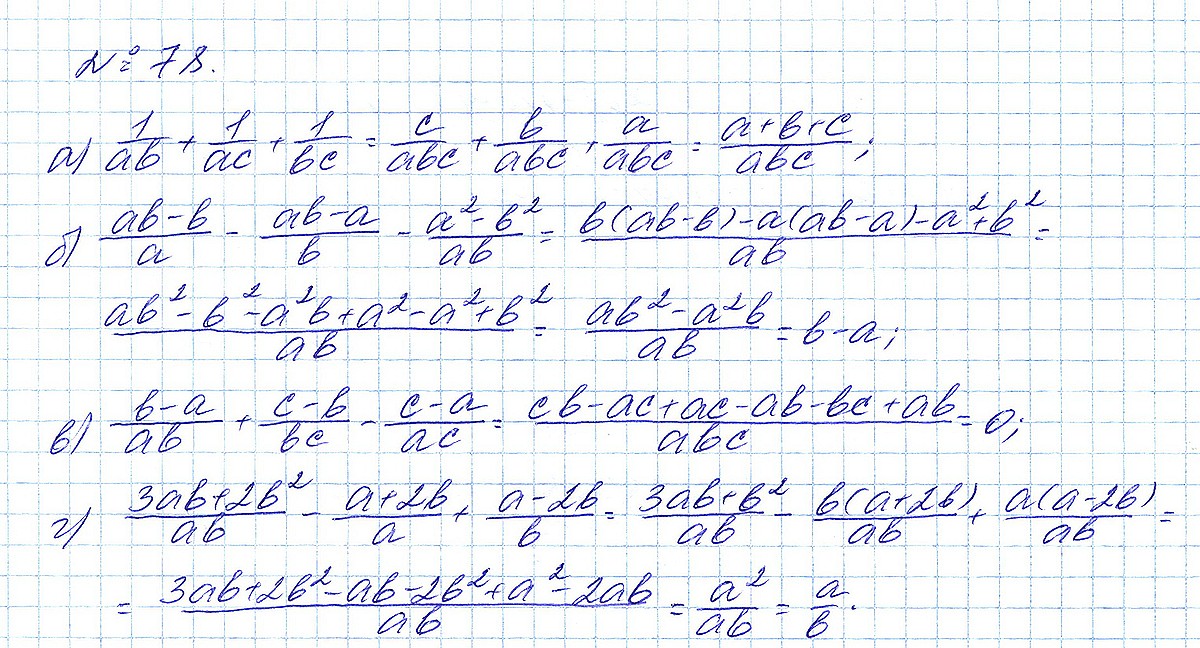 № 78.
а) 1/ab + 1/ac + 1/bc = c/abc + b/abc + a/abc = (a+b+c)/abc;
б) (ab-b)/a - (ab-a)/b - (a²-b²)/ab = (b(ab-b)-a(ab-a)-a²+b²)/ab =
(ab²-b²-a²b+a²-a²+b²)/ab = (ab²-a²b)/ab = b-a;
в) (b-a)/ab + (c-b)/bc - (c-a)/ac = (cb-ac+ac-ab-bc+ab)/abc = 0;
г) (3ab+2b²)/ab - (a+2b)/a + (a-2b)/b = (3ab+b²)/ab - b(a+2b)/ab + a(a-2b)/ab =
= (3ab+2b²-ab-2b²+a²-2ab)/ab = a²/ab = a/b.